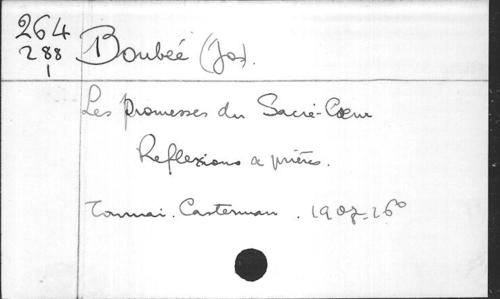 264
288
1
Boubée (Jos).
Les Promesses du Sacré-Cœur
Reflexions & prières.
Tournai. Casterman. 1907-16°